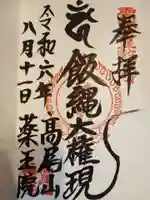 奉拝
飯縄大権現
令和六年 高尾山
八月十一日 薬王院